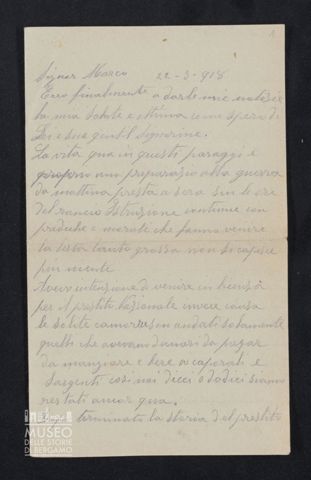 1
Signor Marco 22-3-918
Ecco finalmente a darle mie notizie
la mia salute e ottima come spero di
Lei e sue gentil Signorine.
La vita qua in questi paraggi è
proprio un preparazio alla guerra
da mattina presta a sera sin le ore
del rancio Istruzione continue con
prediche e morale che fanno venire
la testa tanto grossa non si capisce
piu niente
Avevo intenzione di venire in licenza
per il prestito Nazionale invece causa
le solite camorre sin andati solamente
quelli che avevano danari da pagar
da mangiare e bere ai caporali e
Sargenti cosi noi dieci o dodici siamo
restati ancor qua.
terminata la storia del prestito
MUSEO
DELLE STORIE
DI BERGAMO